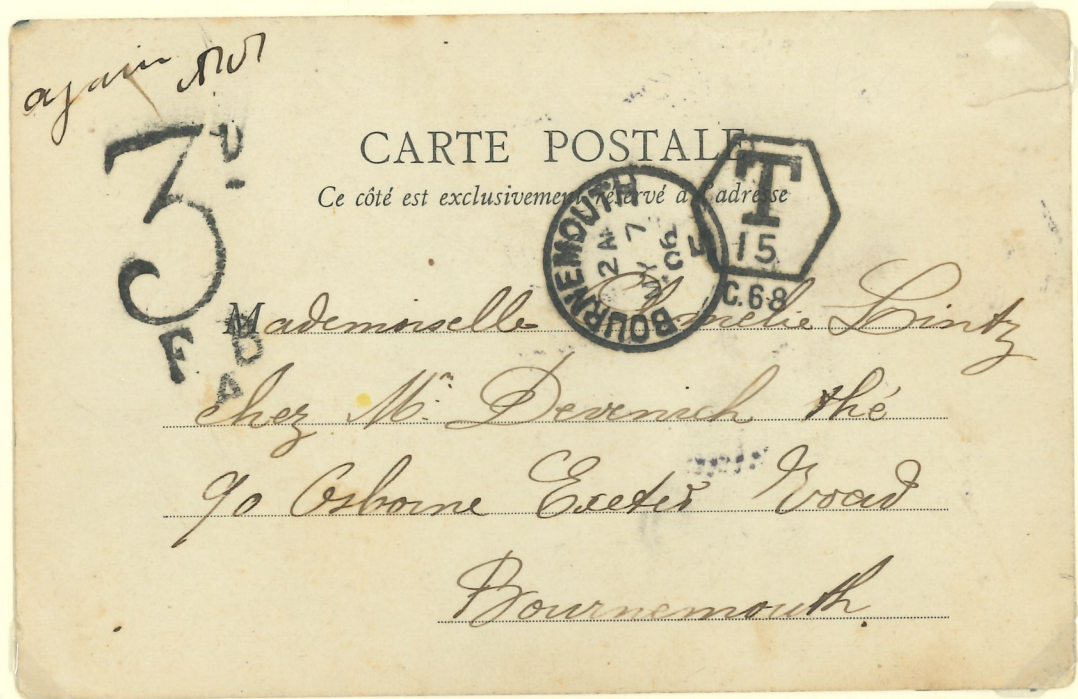 again
3D
CARTE POSTALE
Ce côté est exclusivement réservé à l'adresse
T
15
C.68
BOURNEMOUTH
MY 7
06
F
B
A
Mademoiselle Lintz
chez Mr. Devenich thé
90 Osborne Exeter Road
Bournemouth